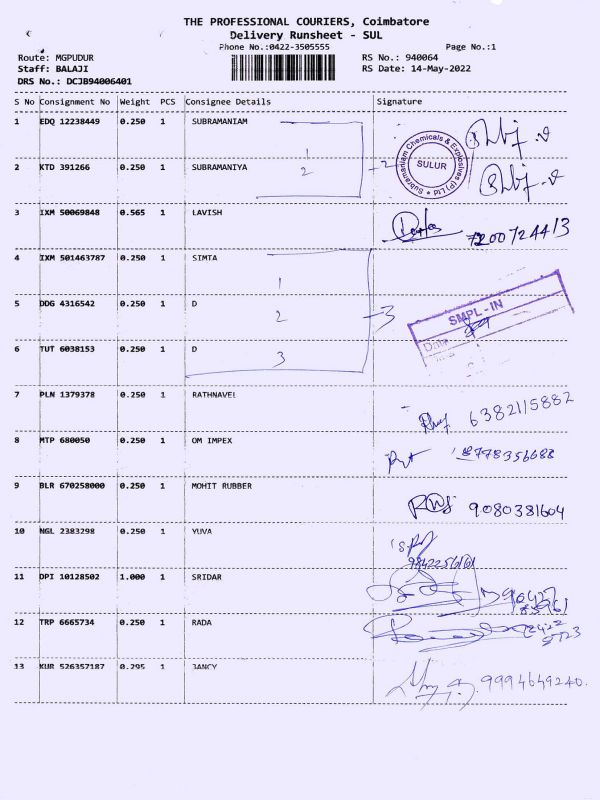 THE PROFESSIONAL COURIERS, Coimbatore
Delivery Runsheet - SUL
Phone No.:0422-3505555 Page No.:1
Route: MGPUDUR RS No.: 940064
Staff: BALAJI RS Date: 14-May-2022
DRS No.: DCJB94006401
S No Consignment No Weight PCS Consignee Details Signature
1 EDQ 12238449 0.250 1 SUBRAMANIAM
1
2 KTD 391266 0.250 1 SUBRAMANIYA 2 -2
Subramaniam Chemicals & Explosives (P) Ltd * SULUR
3 IXM 50069848 0.565 1 LAVISH
7200724413
4 IXM 501463787 0.250 1 SIMTA
1
5 DDG 4316542 0.250 1 D 2 -3
SMPL - IN
Date
6 TUT 6038153 0.250 1 D 3
7 PLN 1379378 0.250 1 RATHNAVEL
6382115882
8 MTP 680050 0.250 1 OM IMPEX
8778356688
9 BLR 670258000 0.250 1 MOHIT RUBBER
9080381604
10 NGL 2383298 0.250 1 YUVA
11 DPI 10128502 1.000 1 SRIDAR
12 TRP 6665734 0.250 1 RADA
13 KUR 526357187 0.295 1 JANCY
9994649240.